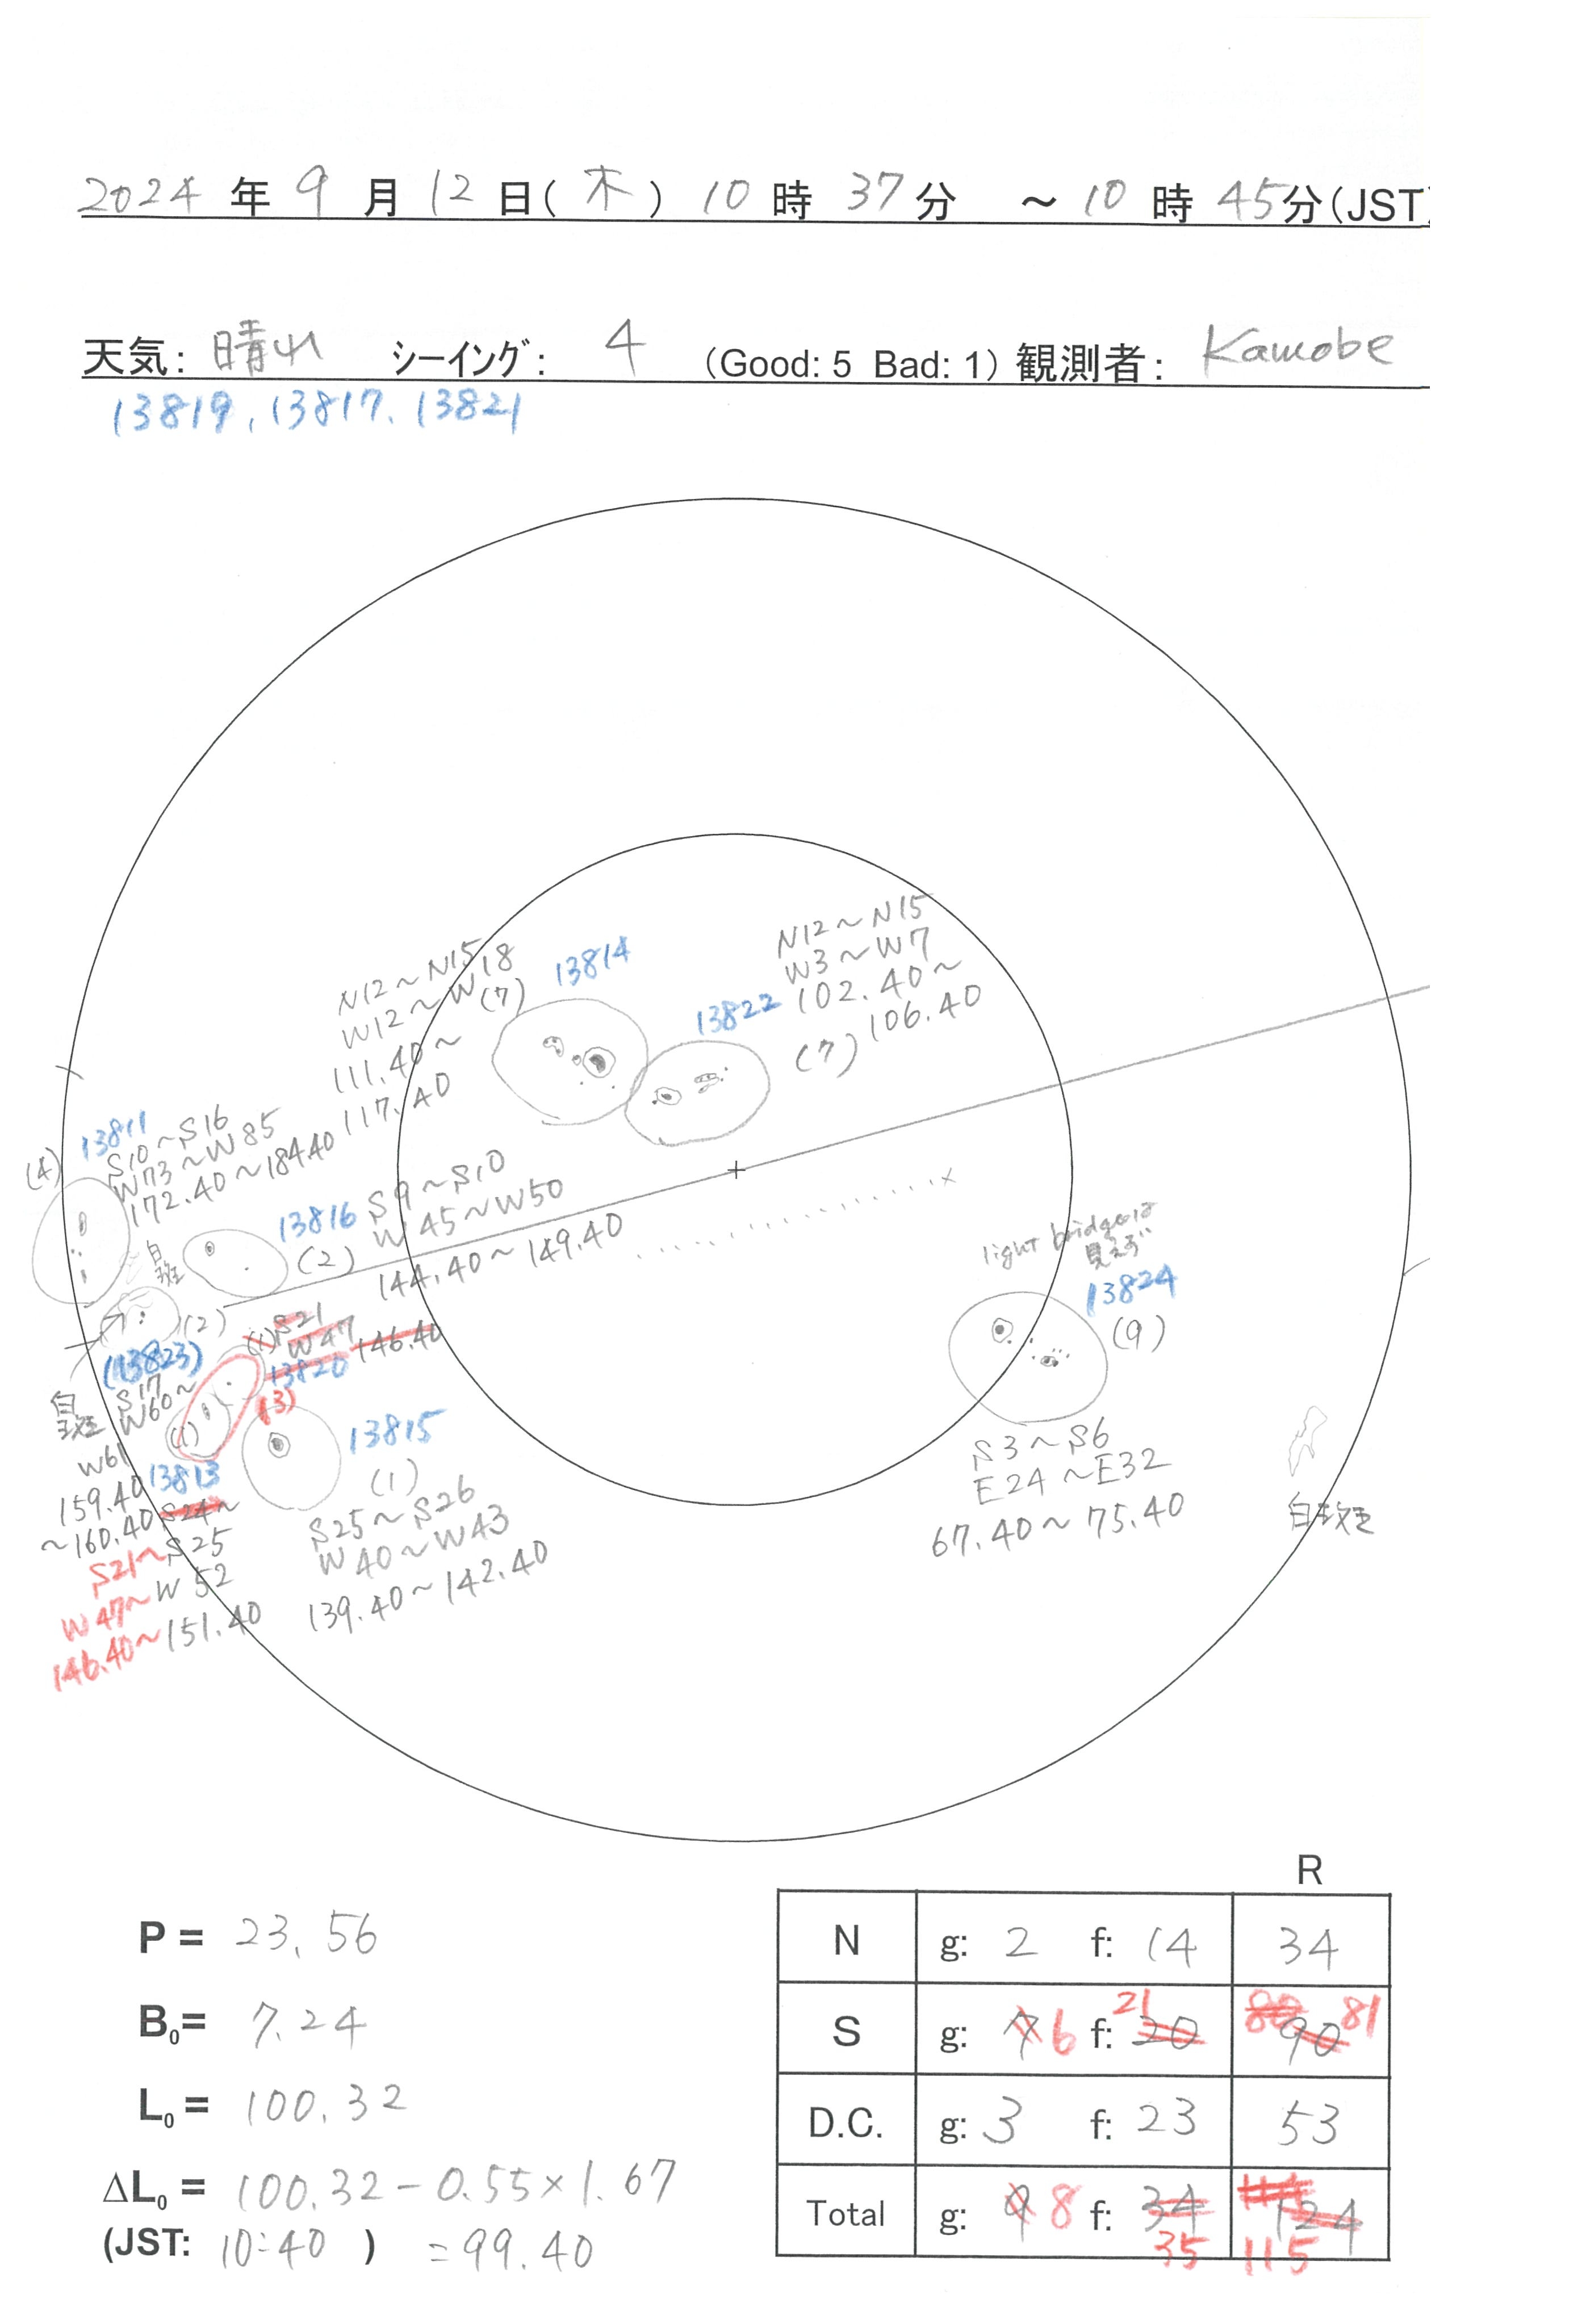 2024 年 9 月 12 日( 木 ) 10 時 37 分 ~ 10 時 45分(JST)
天気: 晴れ シーイング: 4 (Good: 5 Bad: 1) 観測者: Kamobe
13819, 13817, 13821
N12~N15
W12~W18
(7)
111.40~
117.40
13814
13822
N12~N15
W3~W7
102.40~
106.40
(7)
(4)
13811
S10~S16
W73~W85
172.40~184.40
白斑
13816
(2)
S9~S10
W45~W50
144.40~149.40
(2)
(13823)
白斑
S17
W60~
W61
159.40
~160.40
(1) S21
W47
146.40
13820
(3)
(1)
13813
S24~
S21~S25
W47~W52
146.40~151.40
13815
(1)
S25~S26
W40~W43
139.40~142.40
light bridgeは
見えず
13824
(9)
S3~S6
E24~E32
67.40~75.40
白斑
P = 23.56
B0= 7.24
L0 = 100.32
ΔL0 = 100.32-0.55×1.67
(JST: 10:40 ) =99.40
R
N g: 2 f: 14 34
S g: 7 6 f: 21 20 80 90 81
D.C. g: 3 f: 23 53
Total g: 9 8 f: 34 35 124 115